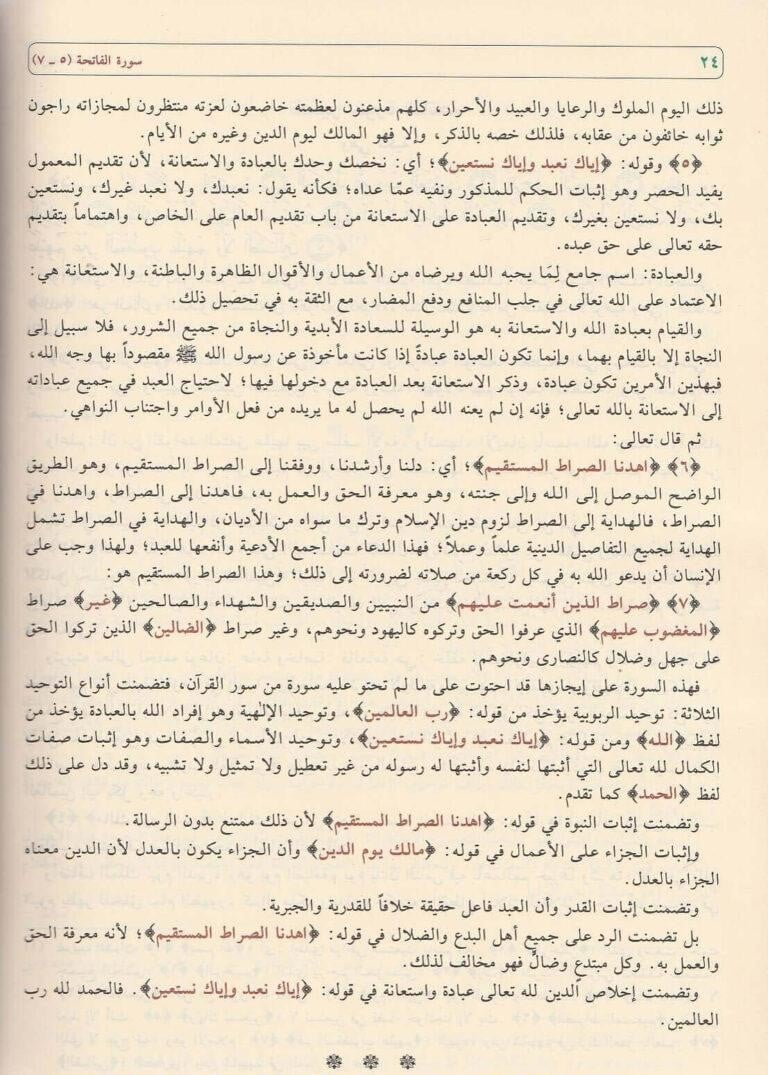 ٢٤
سورة الفاتحة (٥ ـ ٧)
ذلك اليوم الملوك والرعايا والعبيد والأحرار، كلهم مذعنون لعظمته خاضعون لعزته منتظرون لمجازاته راجون
ثوابه خائفون من عقابه، فلذلك خصه بالذكر، وإلا فهو المالك ليوم الدين وغيره من الأيام.
﴿٥﴾ وقوله: ﴿إياك نعبد وإياك نستعين﴾؛ أي: نخصك وحدك بالعبادة والاستعانة، لأن تقديم المعمول
يفيد الحصر وهو إثبات الحكم للمذكور ونفيه عمّا عداه؛ فكأنه يقول: نعبدك، ولا نعبد غيرك، ونستعين
بك، ولا نستعين بغيرك، وتقديم العبادة على الاستعانة من باب تقديم العام على الخاص، واهتماماً بتقديم
حقه تعالى على حق عبده.
والعبادة: اسم جامع لِمَا يحبه الله ويرضاه من الأعمال والأقوال الظاهرة والباطنة، والاستعانة هي:
الاعتماد على الله تعالى في جلب المنافع ودفع المضار، مع الثقة به في تحصيل ذلك.
والقيام بعبادة الله والاستعانة به هو الوسيلة للسعادة الأبدية والنجاة من جميع الشرور، فلا سبيل إلى
النجاة إلا بالقيام بهما، وإنما تكون العبادة عبادةً إذا كانت مأخوذة عن رسول الله ﷺ مقصوداً بها وجه الله،
فبهذين الأمرين تكون عبادة، وذكر الاستعانة بعد العبادة مع دخولها فيها؛ لاحتياج العبد في جميع عباداته
إلى الاستعانة بالله تعالى؛ فإنه إن لم يعنه الله لم يحصل له ما يريده من فعل الأوامر واجتناب النواهي.
ثم قال تعالى:
﴿٦﴾ ﴿اهدنا الصراط المستقيم﴾؛ أي: دلنا وأرشدنا، ووفقنا إلى الصراط المستقيم، وهو الطريق
الواضح الموصل إلى الله وإلى جنته، وهو معرفة الحق والعمل به، فاهدنا إلى الصراط، واهدنا في
الصراط، فالهداية إلى الصراط لزوم دين الإسلام وترك ما سواه من الأديان، والهداية في الصراط تشمل
الهداية لجميع التفاصيل الدينية علماً وعملاً؛ فهذا الدعاء من أجمع الأدعية وأنفعها للعبد؛ ولهذا وجب على
الإنسان أن يدعو الله به في كل ركعة من صلاته لضرورته إلى ذلك؛ وهذا الصراط المستقيم هو:
﴿٧﴾ ﴿صراط الذين أنعمت عليهم﴾ من النبيين والصديقين والشهداء والصالحين ﴿غير﴾ صراط
﴿المغضوب عليهم﴾ الذي عرفوا الحق وتركوه كاليهود ونحوهم، وغير صراط ﴿الضالين﴾ الذين تركوا الحق
على جهل وضلال كالنصارى ونحوهم.
فهذه السورة على إيجازها قد احتوت على ما لم تحتو عليه سورة من سور القرآن، فتضمنت أنواع التوحيد
الثلاثة: توحيد الربوبية يؤخذ من قوله: ﴿رب العالمين﴾، وتوحيد الإلٰهية وهو إفراد الله بالعبادة يؤخذ من
لفظ ﴿الله﴾ ومن قوله: ﴿إياك نعبد وإياك نستعين﴾، وتوحيد الأسماء والصفات وهو إثبات صفات
الكمال لله تعالى التي أثبتها لنفسه وأثبتها له رسوله من غير تعطيل ولا تمثيل ولا تشبيه، وقد دل على ذلك
لفظ ﴿الحمد﴾ كما تقدم.
وتضمنت إثبات النبوة في قوله: ﴿اهدنا الصراط المستقيم﴾ لأن ذلك ممتنع بدون الرسالة.
وإثبات الجزاء على الأعمال في قوله: ﴿مالك يوم الدين﴾ وأن الجزاء يكون بالعدل لأن الدين معناه
الجزاء بالعدل.
وتضمنت إثبات القدر وأن العبد فاعل حقيقة خلافاً للقدرية والجبرية.
بل تضمنت الرد على جميع أهل البدع والضلال في قوله: ﴿اهدنا الصراط المستقيم﴾؛ لأنه معرفة الحق
والعمل به. وكل مبتدع وضالٍّ فهو مخالف لذلك.
وتضمنت إخلاص الدين لله تعالى عبادة واستعانة في قوله: ﴿إياك نعبد وإياك نستعين﴾. فالحمد لله رب
العالمين.